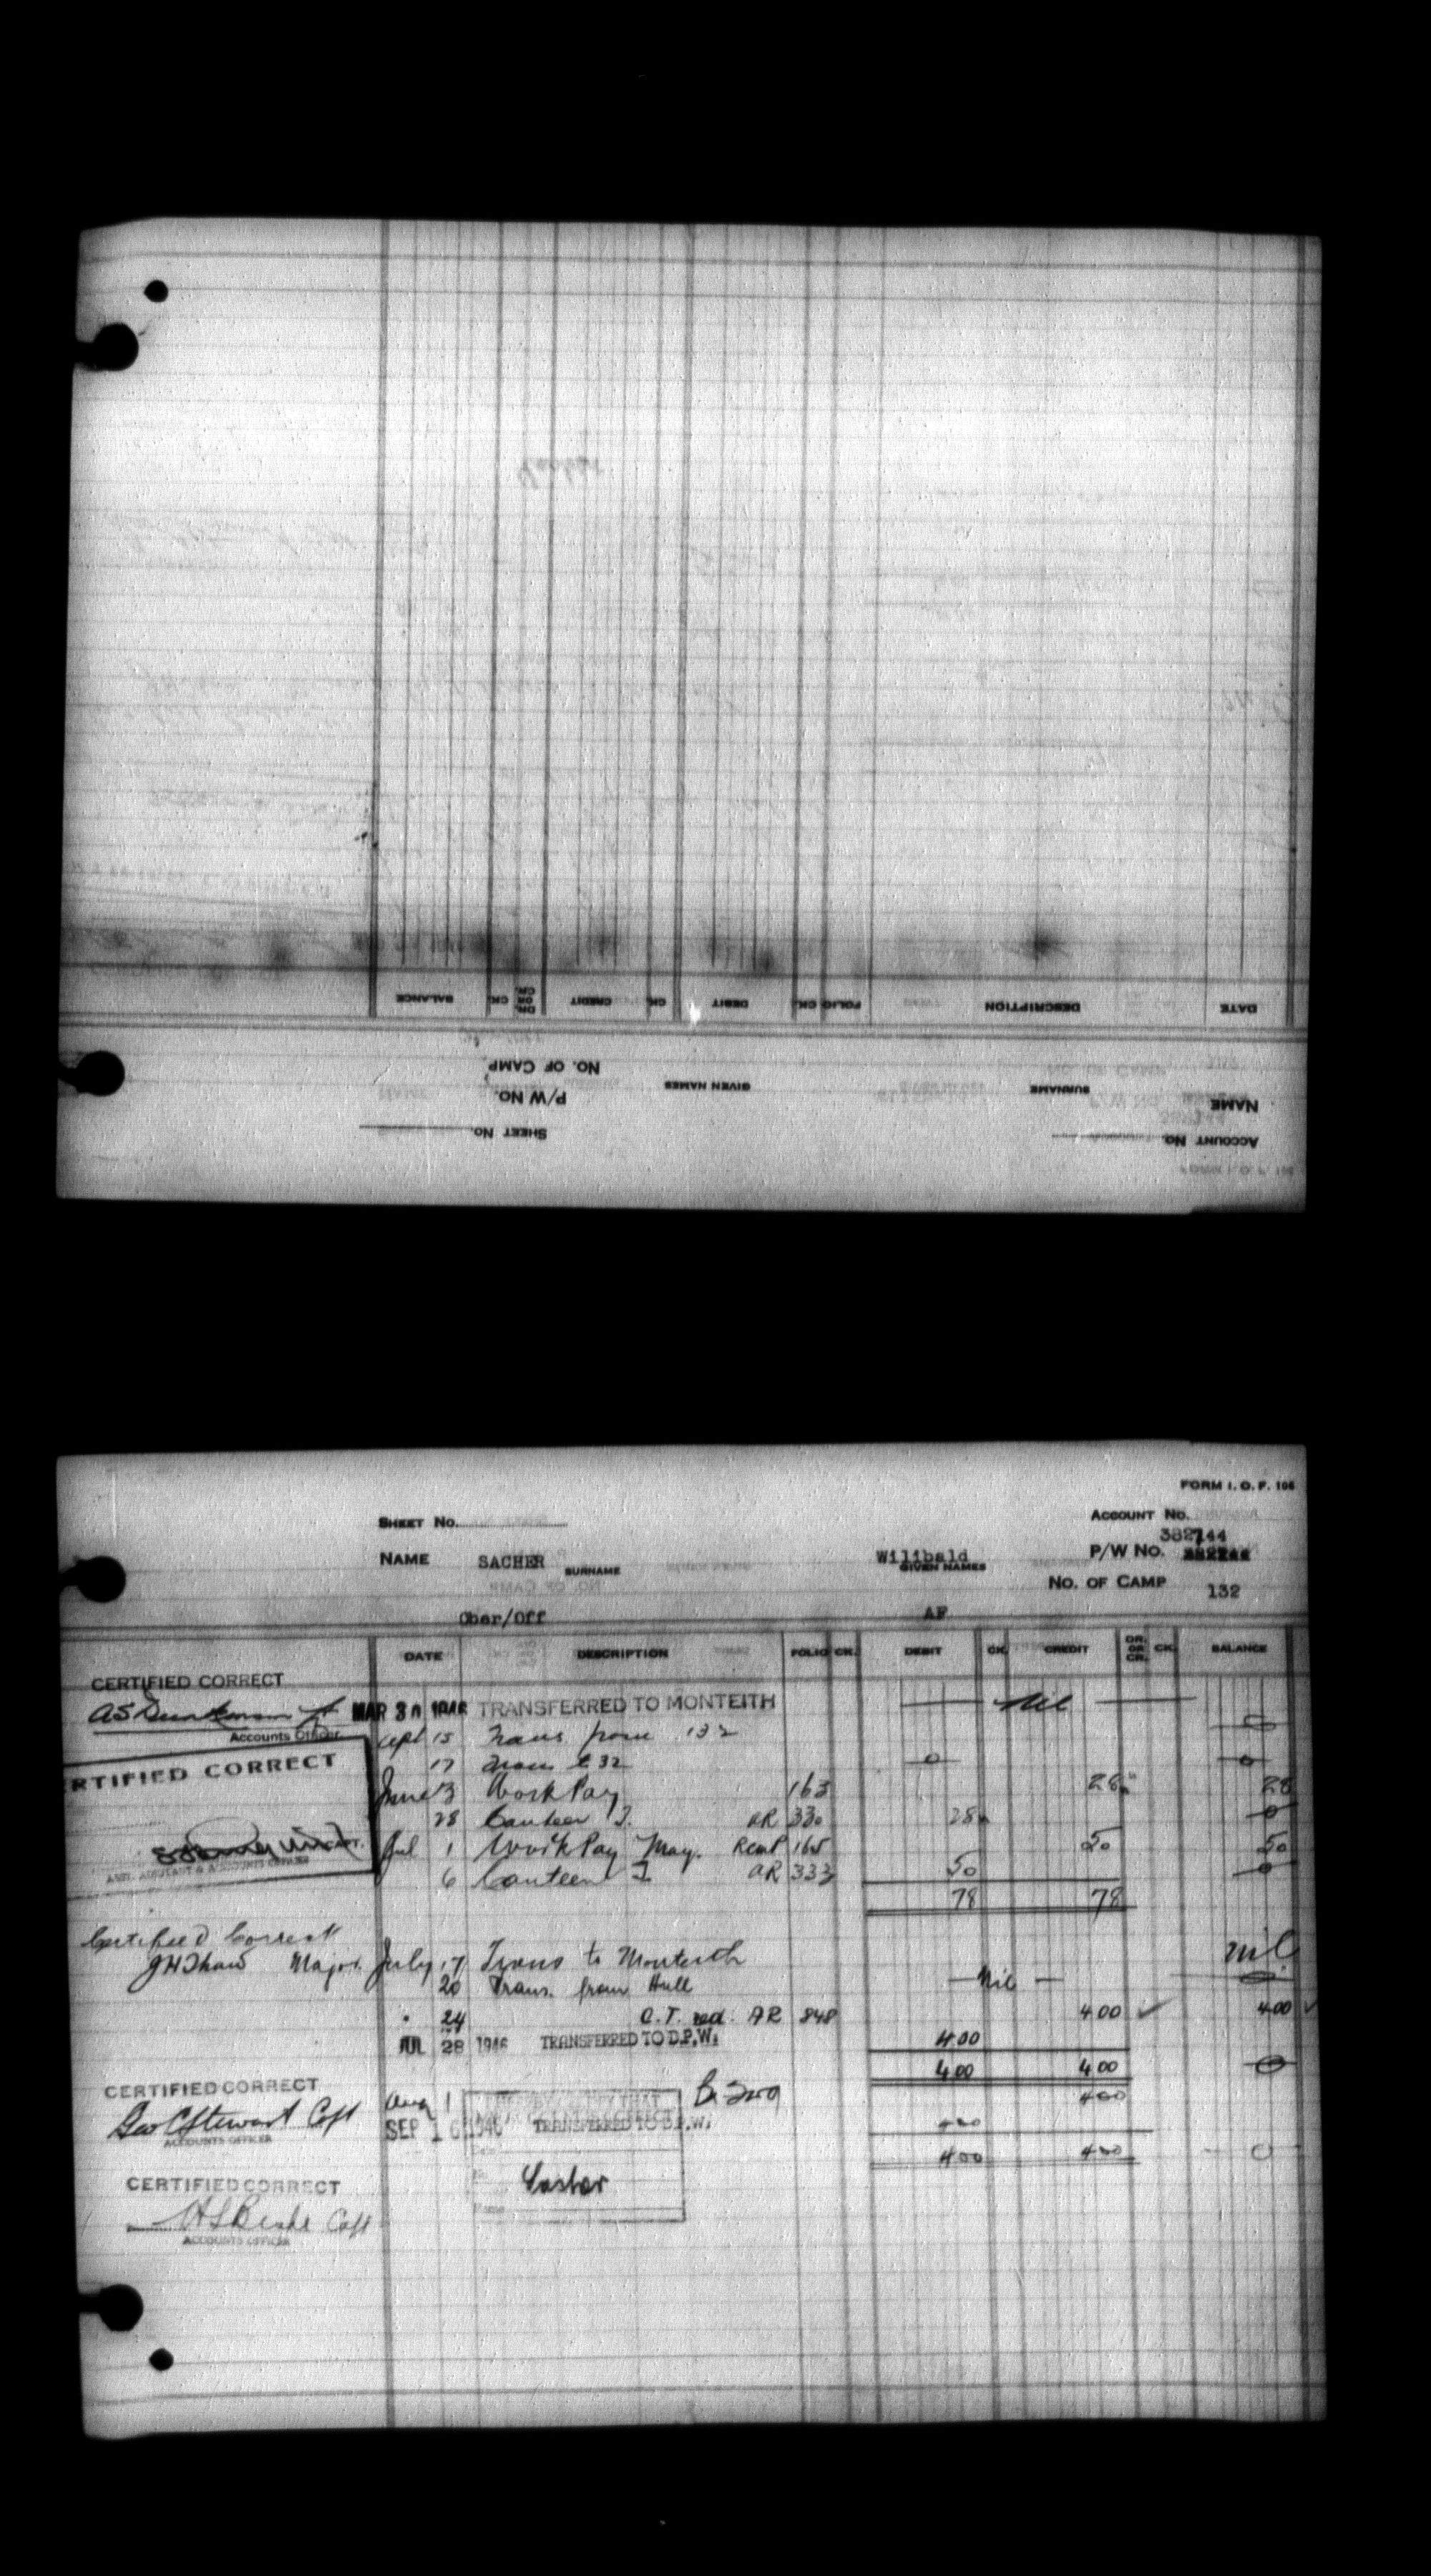 DATE DESCRIPTION FOLIO CK. DEBIT CK. CREDIT DR. OR CR. CK. BALANCE
NAME SURNAME GIVEN NAMES P/W NO. NO. OF CAMP
ACCOUNT NO. SHEET NO.
FORM I. O. F. 106
SHEET NO. ACCOUNT NO.
382744
NAME SACHER SURNAME Wilibald GIVEN NAMES P/W NO.
NO. OF CAMP 132
Ober/Off AF
DATE DESCRIPTION FOLIO CK. DEBIT CK. CREDIT DR. OR CR. CK. BALANCE
CERTIFIED CORRECT
MAR 30 1946 TRANSFERRED TO MONTEITH Nil
Accounts Officer
Apl 15 Trans from 132 0
17 from 0 0
RTIFIED CORRECT
June 3 Work Pay 163 28 28
28 Canteen I. AR 330 28 0
CAPT.
ASST. ADJUTANT & ACCOUNTS OFFICER
Jul 1 Work Pay May. 165 50 50
6 Canteen I AR 333 50 0
78 78
Certified Correct
JH Shaw Major July 17 Trans to Monteith nil
20 Trans. from Hull Nil
" 24 C.T. red. AR 848 4.00 ✓ 4.00 ✓
JUL 28 1946 TRANSFERRED TO D.P.W. 4.00
4.00 4.00 0
CERTIFIED CORRECT
Geo C Stewart Capt
ACCOUNTS OFFICER
Aug 1 400
SEP 16 1946 TRANSFERRED TO D.P.W. 400
400 400 0
CERTIFIED CORRECT
Capt
ACCOUNTS OFFICER